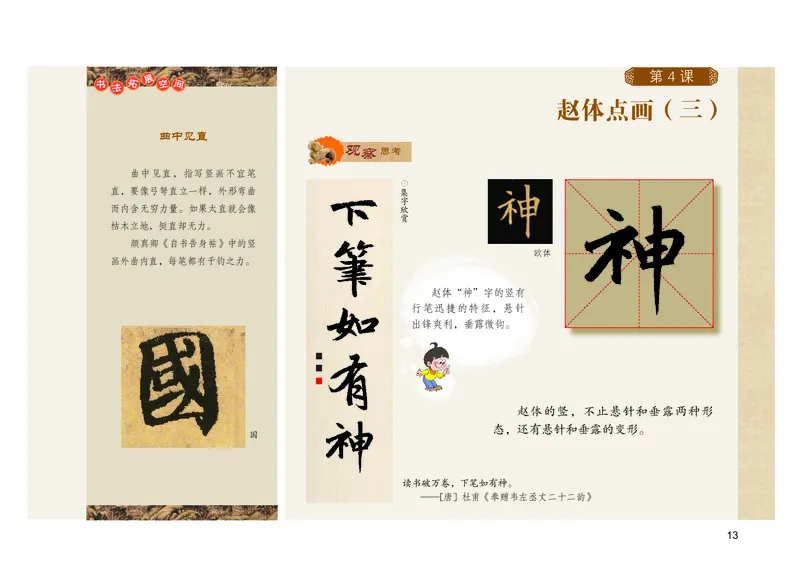 书法拓展空间
曲中见直
曲中见直，指写竖画不宜笔
直，要像弓弩直立一样，外形弯曲
而内含无穷力量。如果太直就会像
枯木立地，挺直却无力。
颜真卿《自书告身帖》中的竖
画外曲内直，每笔都有千钧之力。
國
国
第4课
赵体点画（三）
观察思考
下筆如有神
⊙集字欣赏
神
欧体
神
赵体“神”字的竖有
行笔迅捷的特征，悬针
出锋爽利，垂露微钩。
赵体的竖，不止悬针和垂露两种形
态，还有悬针和垂露的变形。
读书破万卷，下笔如有神。
——[唐] 杜甫《奉赠韦左丞丈二十二韵》
13